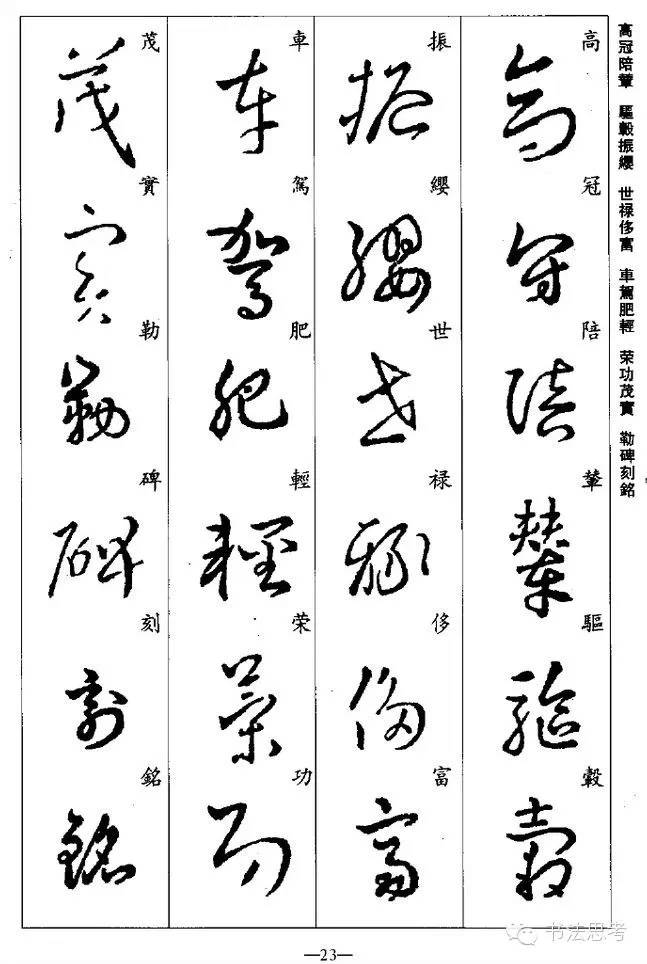 高冠陪輦 驅轂振纓 世禄侈富 車駕肥輕 荣功茂實 勒碑刻銘
高冠陪輦驅轂
高冠陪輦驅轂
振纓世禄侈富
振纓世禄侈富
車駕肥輕荣功
車駕肥輕荣功
茂實勒碑刻銘
茂實勒碑刻銘
—23—
书法思考